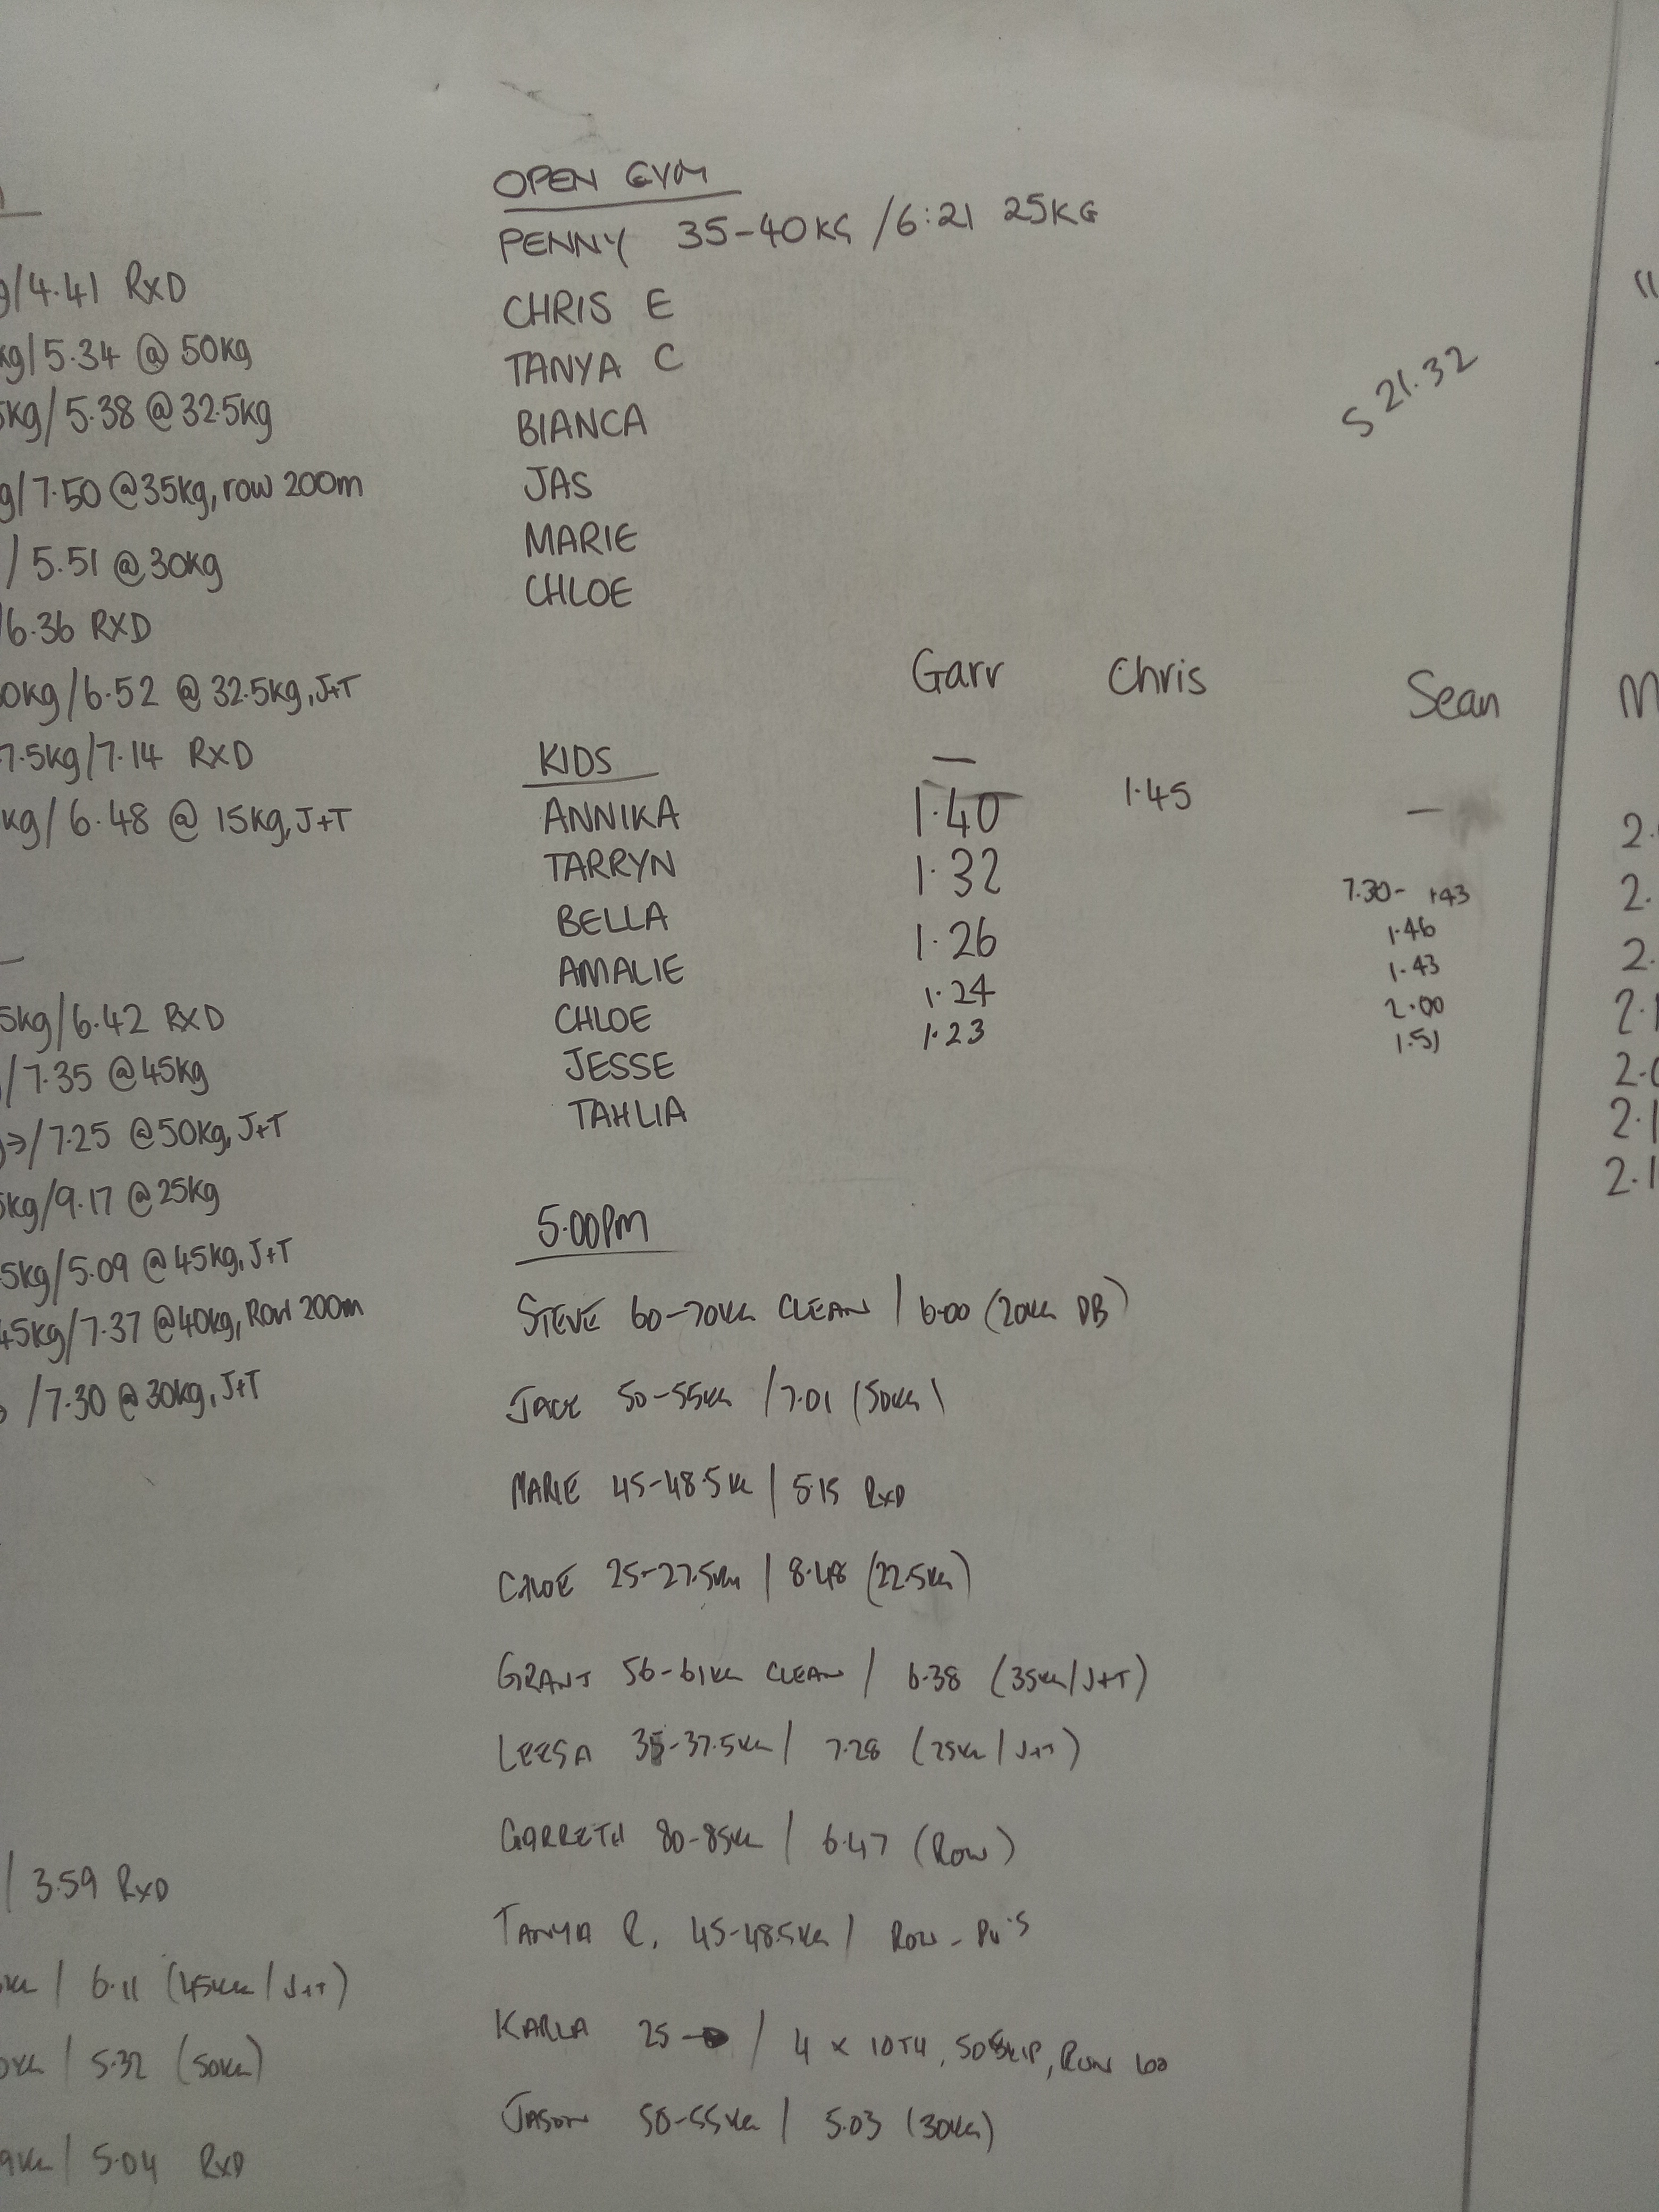 g/4.41 RXD
kg/5.34 @ 50kg
5kg/5.38 @ 32.5kg
g/7.50 @35kg, row 200m
/ 5.51 @30kg
/6.36 RXD
0kg/6.52 @ 32.5kg, J+T
7.5kg/7.14 RXD
kg/6.48 @ 15kg, J+T
5kg/6.42 RXD
/7.35 @45kg
→/7.25 @50kg, J+T
5kg/9.17 @25kg
5kg/5.09 @45kg, J+T
45kg/7.37 @40kg, Row 200m
/7.30 @30kg, J+T
/ 3.59 RXD
KG / 6.11 (45KG / J+T)
KG / 5.32 (50KG)
9KG / 5.04 RXD
OPEN GYM
PENNY 35-40KG /6:21 25KG
CHRIS E
TANYA C
BIANCA
JAS
MARIE
CHLOE
S 21.32
Garr Chris Sean
KIDS —
ANNIKA 1.40 1.45 —
TARRYN 1.32 7.30- 1.43
BELLA 1.26 1.46
AMALIE 1.24 1.43
CHLOE 1.23 2.00
JESSE 1.51
TAHLIA
5.00PM
STEVE 60-70KG CLEAN / 6.00 (20KG DB)
JACE 50-55KG /7.01 (50KG)
MARIE 45-48.5K / 5.15 RXD
CHLOE 25-27.5KG / 8.48 (22.5KG)
GRANT 56-61KG CLEAN / 6.38 (35KG/J+T)
LEESA 35-37.5KG / 7.28 (25KG / J+T)
GARRETH 80-85KG / 6.47 (ROW)
TANYA R. 45-48.5KG / ROW - PU'S
KARLA 25 → / 4 x 10 TH, 50 SKIP, RUN
JASON 50-55KG / 5.03 (30KG)
M
2.
2.
2.
2.1
2.0
2.1
2.1